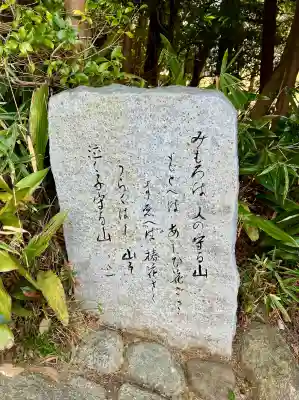 みもろは 人の守る山
もとへは あしび花さき
すゑへは 椿花さく
うらぐはし 山ぞ
泣く子守る山